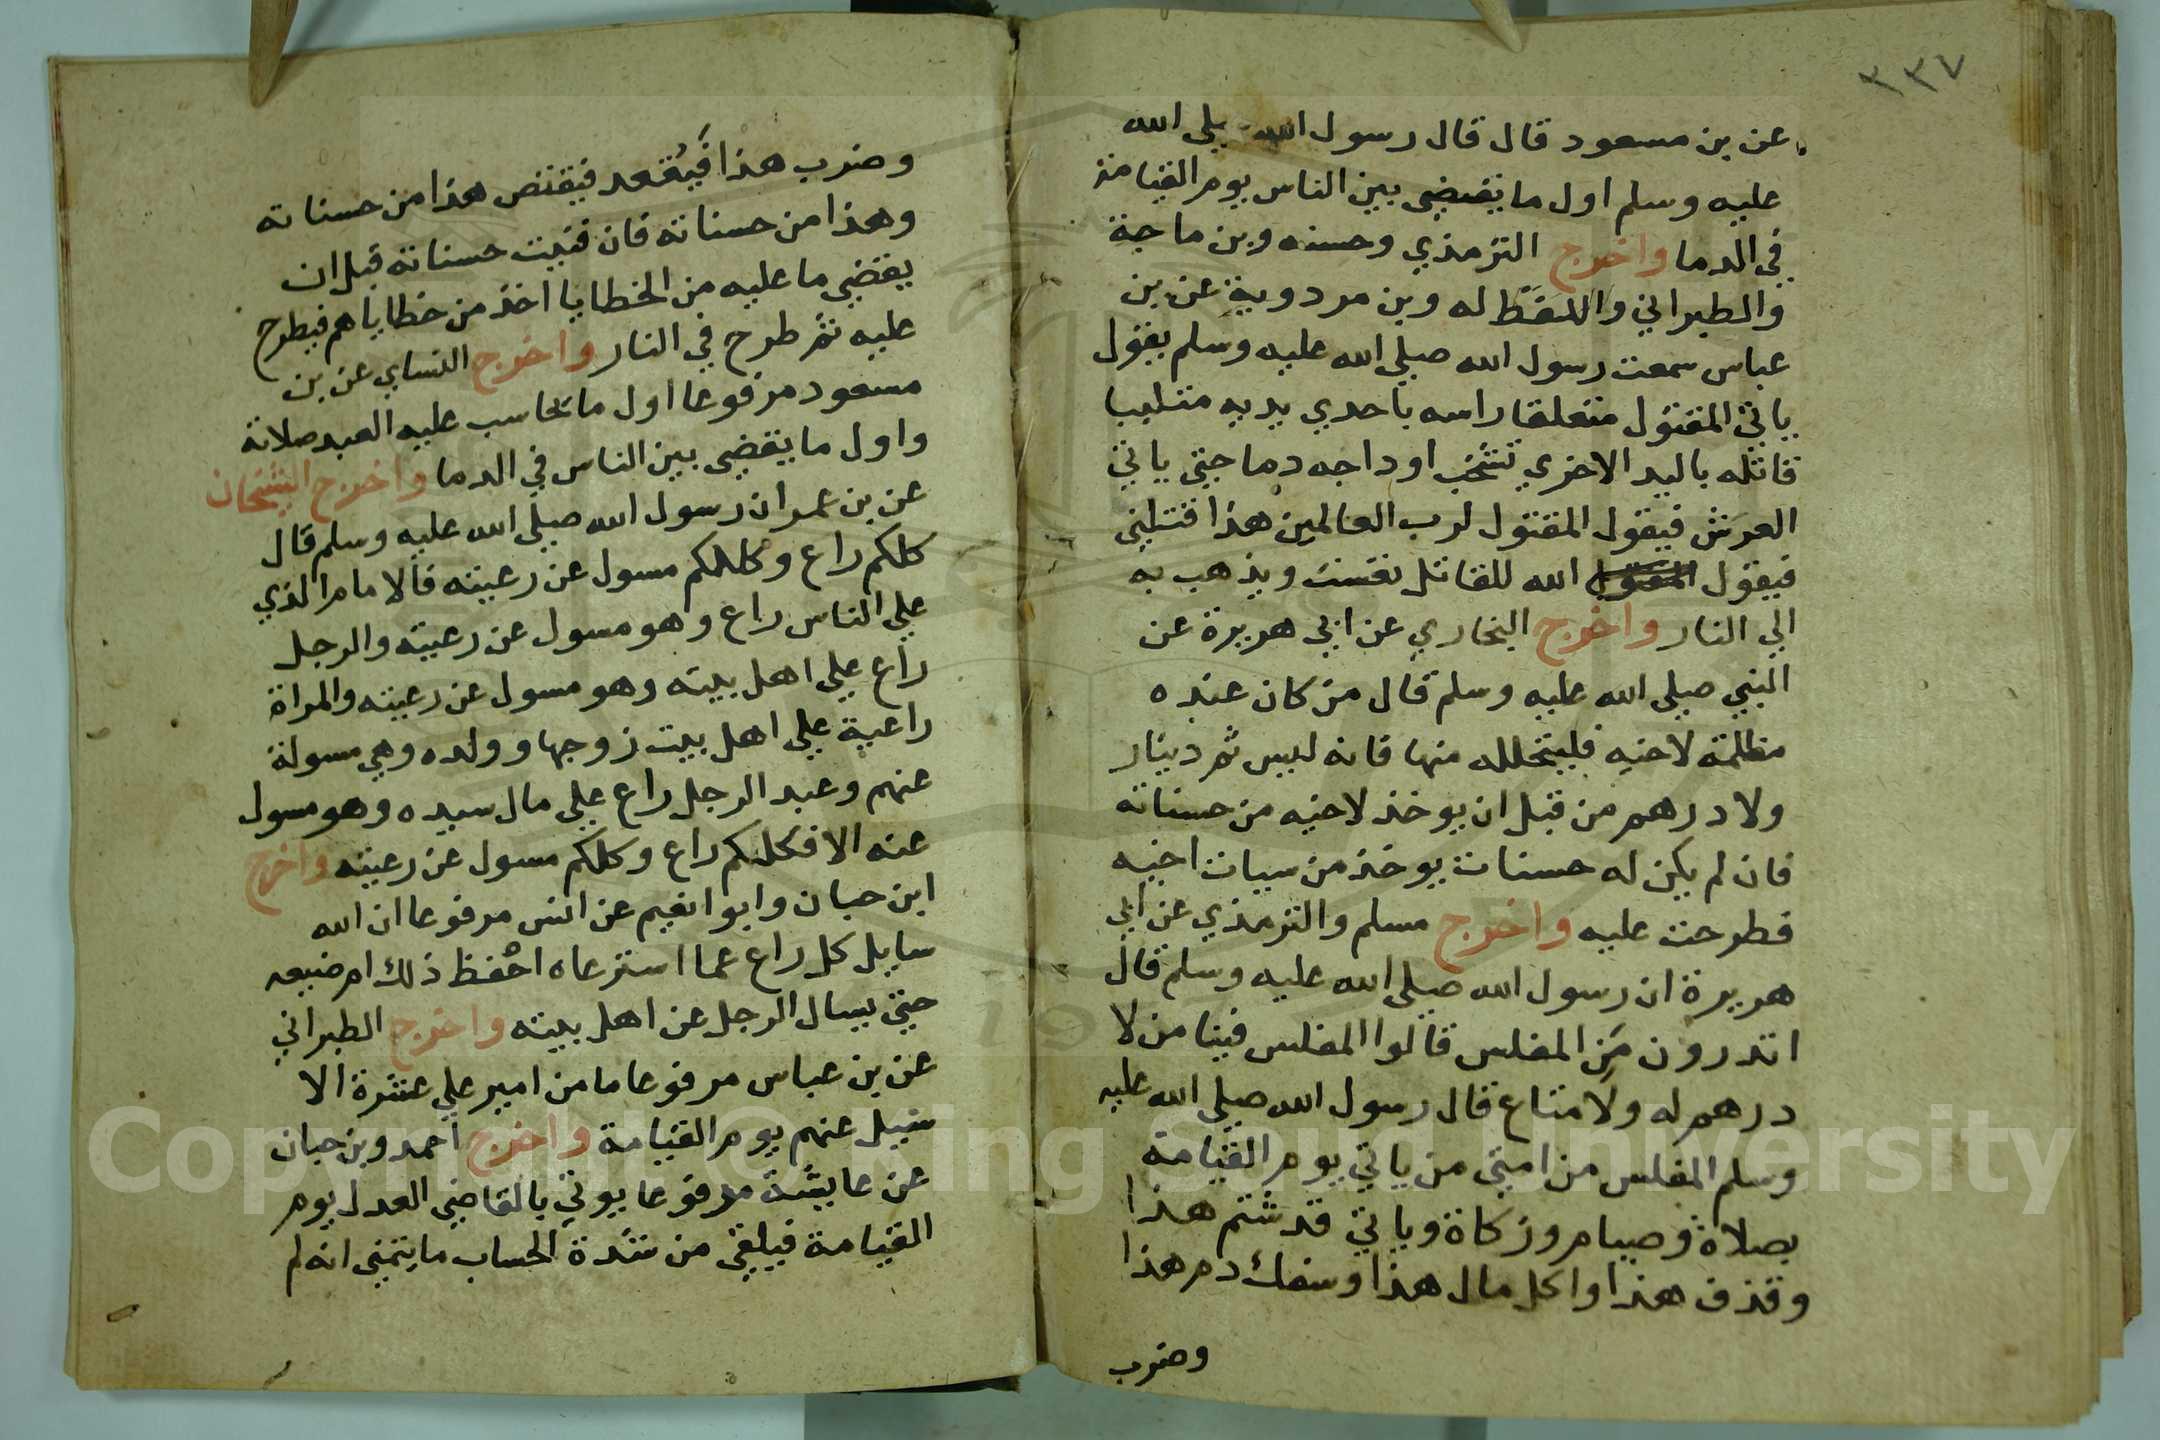 ٣٣٧
عن بن مسعود قال قال رسول الله صلى الله
عليه وسلم اول ما يقضي بين الناس يوم القيامة
في الدما واخرج الترمذي وحسنه وبن ماجة
والطبراني واللفظ له وبن مردوية عن بن
عباس سمعت رسول الله صلي الله عليه وسلم يقول
ياتي المقتول متعلقا راسه باحدي يديه متلببا
قاتله باليد الاخري تشخب اوداجه دما حتي ياتي
العرش فيقول المقتول لرب العالمين هذا قتلني
فيقول المقتول الله للقاتل تعست ويذهب به
الي النار واخرج البخاري عن ابي هريرة عن
النبي صلي الله عليه وسلم قال من كان عنده
مظلمة لاخيه فليتحلله منها فانه ليس ثم دينار
ولا درهم من قبل ان يوخذ لاخيه من حسناته
فان لم يكن له حسنات يوخذ من سيات اخيه
فطرحت عليه واخرج مسلم والترمذي عن ابي
هريرة ان رسول الله صلي الله عليه وسلم قال
اتدرون مَن المفلس قالوا المفلس فينا من لا
درهم له ولا متاع قال رسول الله صلي الله عليه
وسلم المفلس من امتي من ياتي يوم القيامة
بصلاة وصيام وزكاة وياتي قد شتم هذا
وقذف هذا واكل مال هذا وسفك دم هذا
وضرب
وضرب هذا فَيُقعد فيقتص هذا من حسناته
وهذا من حسناته فان فنيت حسناته قبل ان
يقتضي ما عليه من الخطايا اخذ من خطاياهم فيطرح
عليه ثم طرح في النار واخرج النساي عن بن
مسعود مرفوعا اول ما يحاسب عليه العبد صلاته
واول ما يقضي بين الناس في الدما واخرج الشيخان
عن بن عمر ان رسول الله صلي الله عليه وسلم قال
كلكم راع وكلكم مسول عن رعيته فالامام الذي
علي الناس راع وهو مسول عن رعيته والرجل
راع علي اهل بيته وهو مسول عن رعيته والمراة
راعية علي اهل بيت زوجها وولده وهي مسولة
عنهم وعبد الرجل راع علي مال سيده وهو مسول
عنه الا فكلكم راع وكلكم مسول عن رعيته واخرج
ابن حبان وابوا نعيم عن انس مرفوعا ان الله
سايل كل راع عما استرعاه احفظ ذلك ام ضيعه
حتي يسال الرجل عن اهل بيته واخرج الطبراني
عن بن عباس مرفوعا ما من امير علي عشرة الا
سيل عنهم يوم القيامة واخرج احمد وبن حبان
عن عايشة مرفوعا يوتي بالقاضي العدل يوم
القيامة فيلقي من شدة الحساب ما يتمني انه لم
Copyright © King Saud University